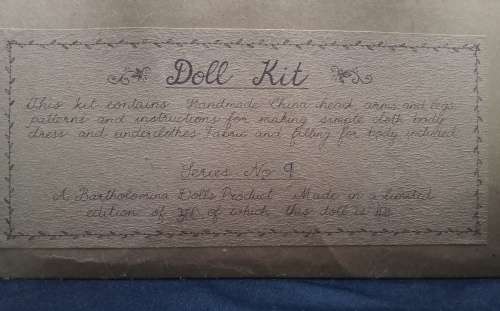 Doll Kit
This kit contains Handmade China head, arms, and legs,
patterns and instructions for making simple cloth body
dress and underclothes. Fabric and filling for body included.
Series No 9
A Bartholomina Dolls Product. Made in a limited
edition of of which this doll is